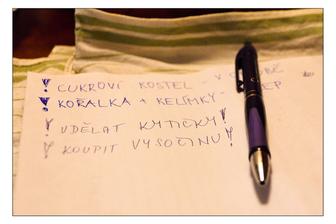 ! CUKROVÍ KOSTEL - V
! KOŘALKA + KELÍMKY -
! UDĚLAT KYTIČKY!
! KOUPIT VYSOČINU!